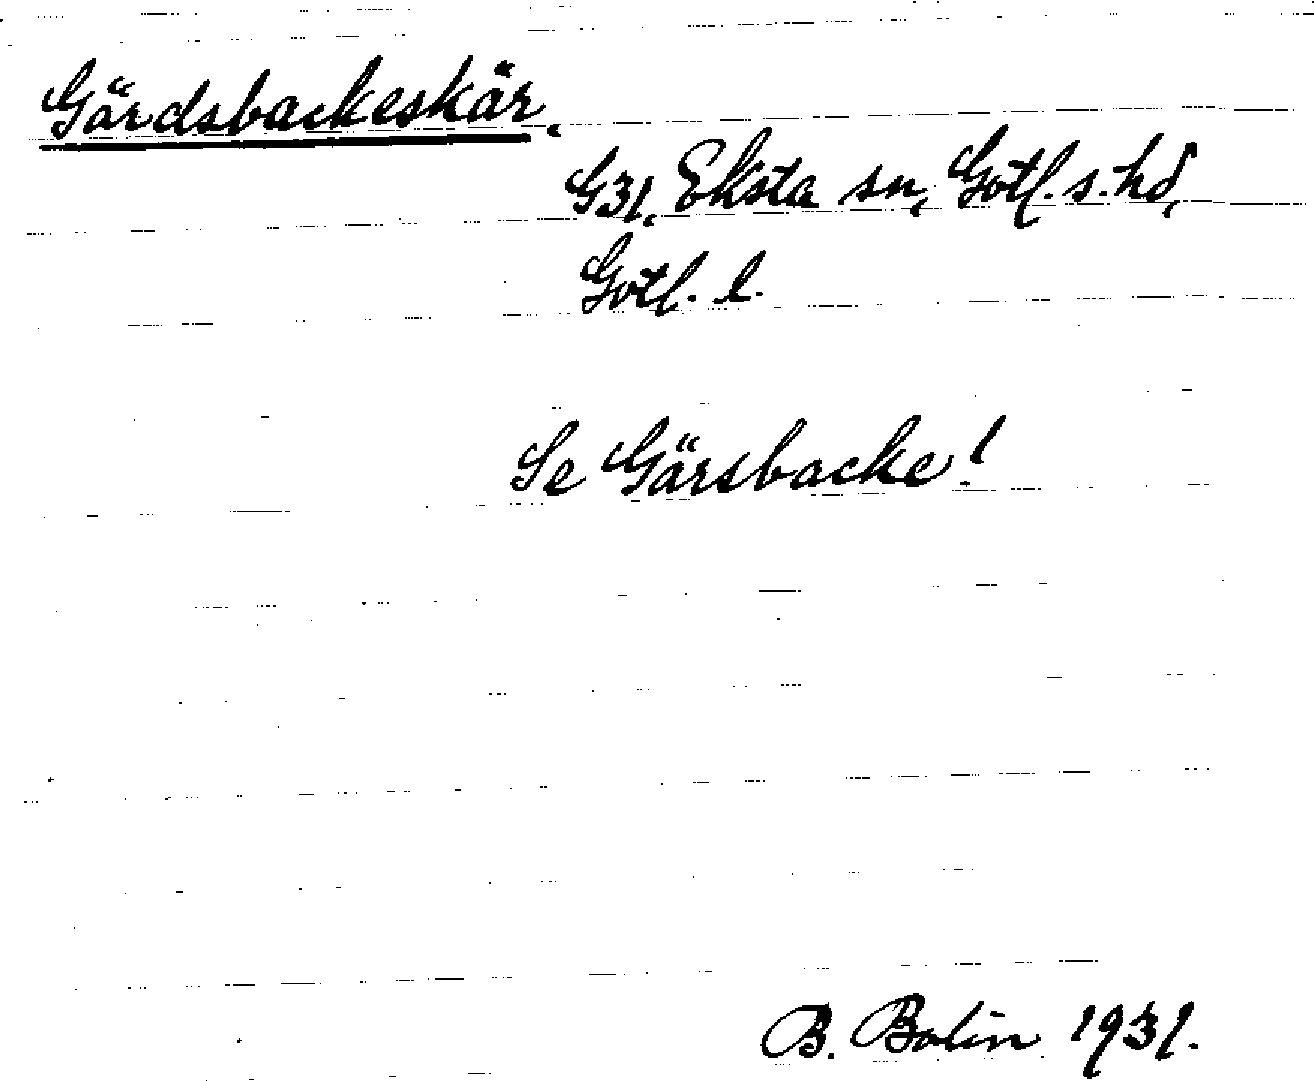 Gärdsbackeskär.
G31, Eksta sn, Gotl. s. hd,
Gotl. l.
Se Gärsbacke!
B. Bolin 1931.